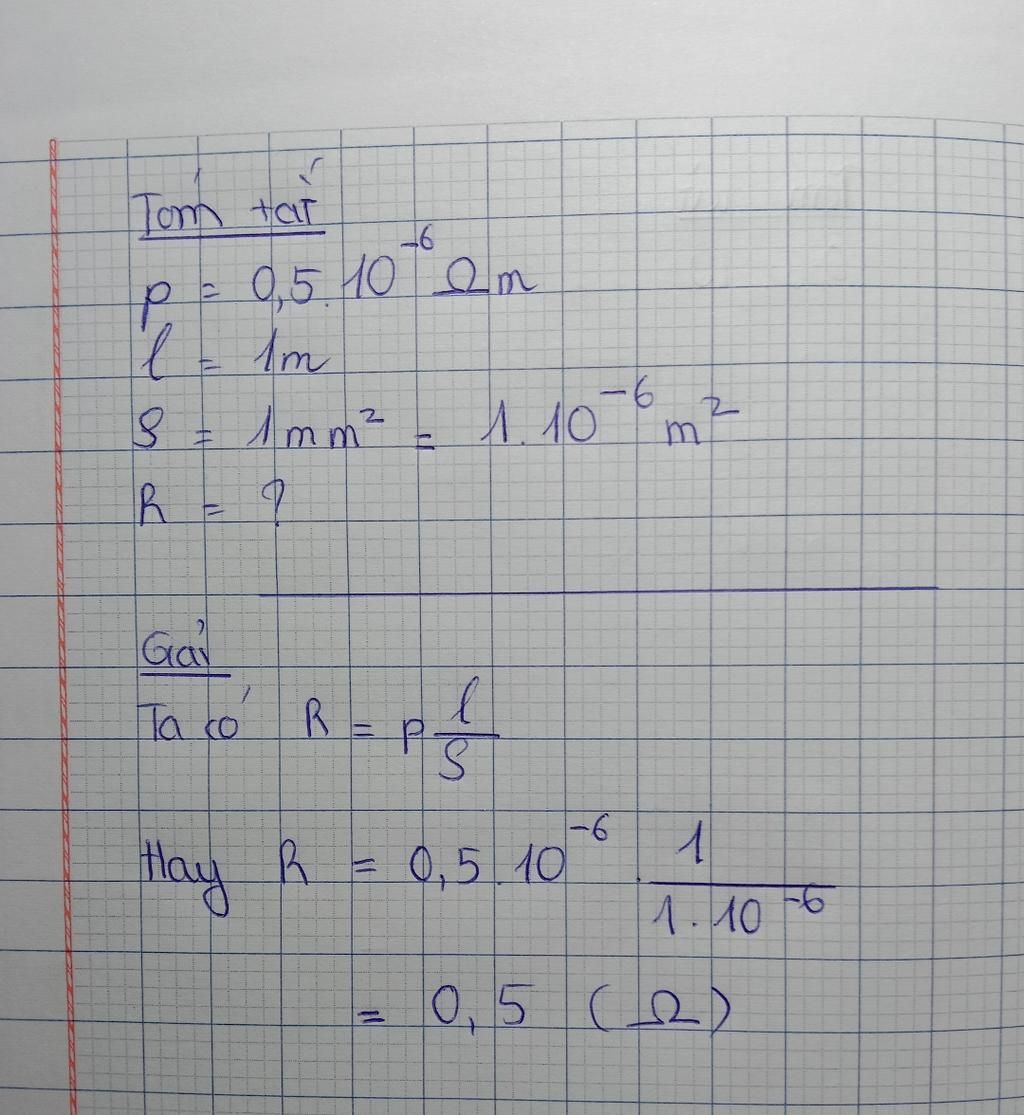 Tóm tắt
p = 0,5.10⁻⁶ Ωm
l = 1m
S = 1mm² = 1.10⁻⁶ m²
R = ?
Gải
Ta có R = p l/S
Hay R = 0,5.10⁻⁶ . 1/(1.10⁻⁶)
= 0,5 (Ω)